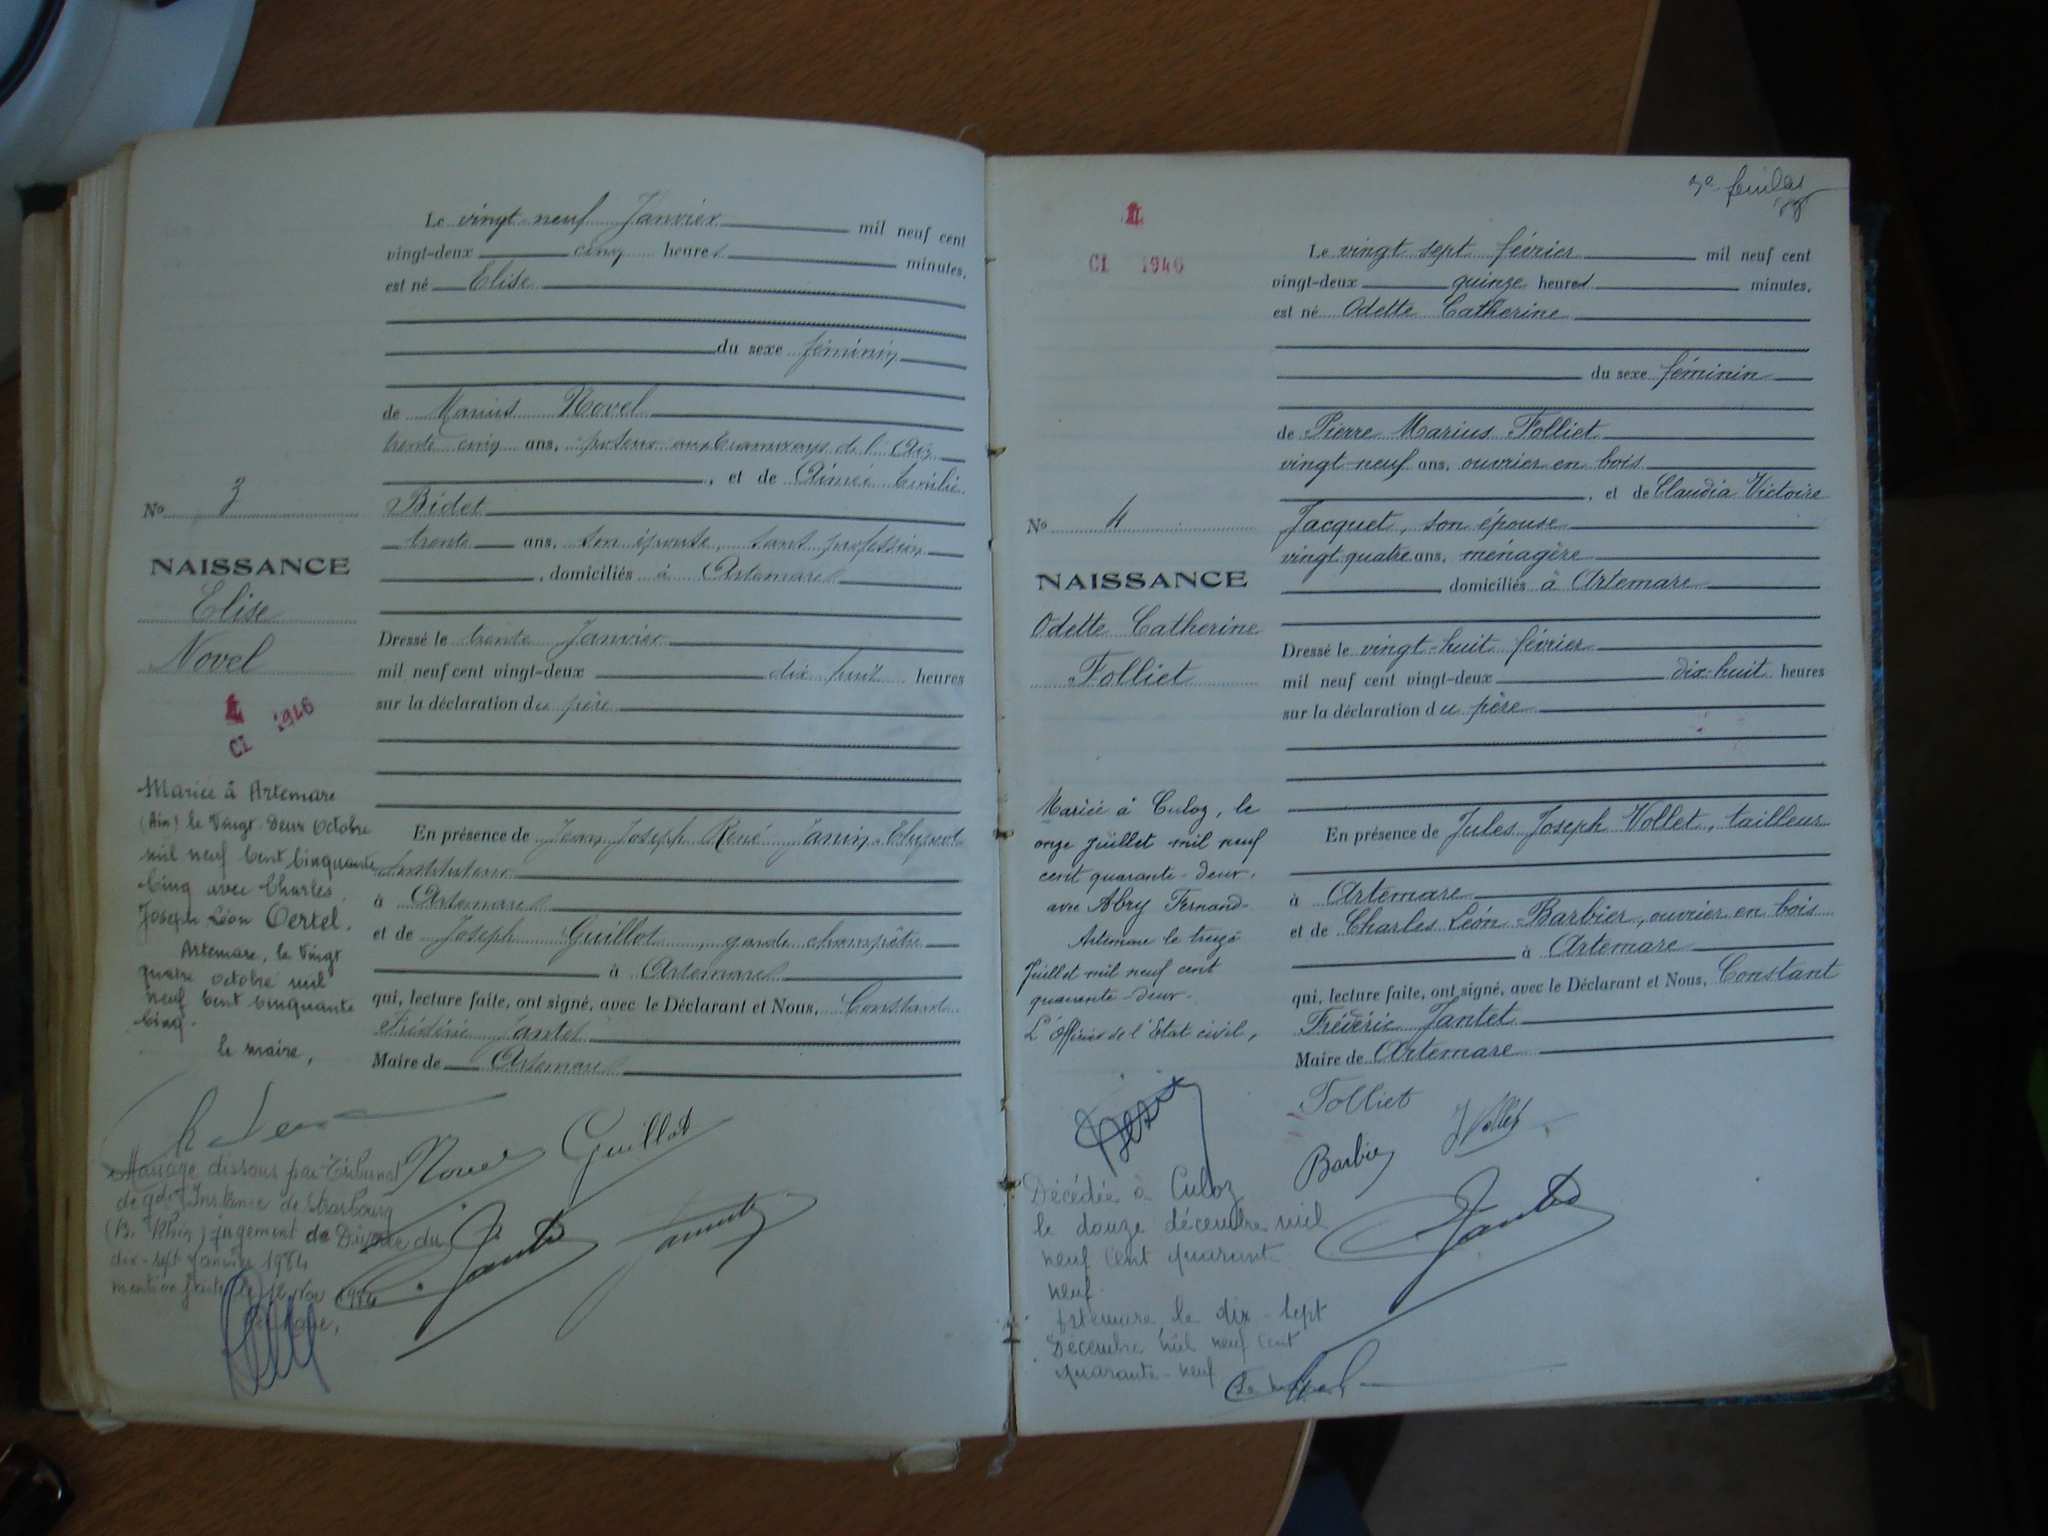 Le vingt-neuf Janvier mil neuf cent
vingt-deux cinq heures minutes,
est né Elise
du sexe féminin
de Marius Novel
trente cinq ans, aux tramways de l'Ain
, et de Aimée Emilie
Bidet
trente ans, son épouse, sans profession
, domiciliés à Artemare
Dressé le trente Janvier
mil neuf cent vingt-deux dix huit heures
sur la déclaration du père
En présence de Jean Joseph René Janin
instituteur
à Artemare
et de Joseph Guillot, garde champêtre
à Artemare
qui, lecture faite, ont signé, avec le Déclarant et Nous, Constant
Frédéric Jantet
Maire de Artemare
No 3
NAISSANCE
Elise
Novel
1946
CI
Mariée à Artemare
(Ain) le Vingt-Deux Octobre
mil neuf Cent Cinquante
Cinq avec Charles
Joseph Léon Oertel.
Artemare, le Vingt
quatre octobre mil
neuf Cent Cinquante
Cinq.
le maire,
Novel Guillot
Mariage dissous par Tribunal
de gde Instance de Strasbourg
(B. Rhin) jugement de Divorce du
dix-sept janvier 1984
mention faite le 12 Nov 1984
Le Maire,
3e feuillet
CI 1946
Le vingt sept février mil neuf cent
vingt-deux quinze heures minutes,
est né Odette Catherine
du sexe féminin
de Pierre Marius Folliet
vingt neuf ans, ouvrier en bois
, et de Claudia Victoire
Jacquet, son épouse
vingt quatre ans, ménagère
domiciliés à Artemare
Dressé le vingt-huit février
mil neuf cent vingt-deux dix-huit heures
sur la déclaration du père
En présence de Jules Joseph Vollet, tailleur
à Artemare
et de Charles Léon Barbier, ouvrier en bois
à Artemare
qui, lecture faite, ont signé, avec le Déclarant et Nous, Constant
Frédéric Jantet
Maire de Artemare
No 4
NAISSANCE
Odette Catherine
Folliet
Mariée à Culoz, le
onze juillet mil neuf
cent quarante-deux,
avec Abry Fernand-
Artemare le treize
Juillet mil neuf cent
quarante-deux-
L'Officier de l'Etat civil,
Folliet
Barbier JVollet
Jantet
Décédée à Culoz
le douze décembre mil
neuf cent quarant
neuf.
Artemare, le dix-sept
Décembre mil neuf cent
quarante-neuf